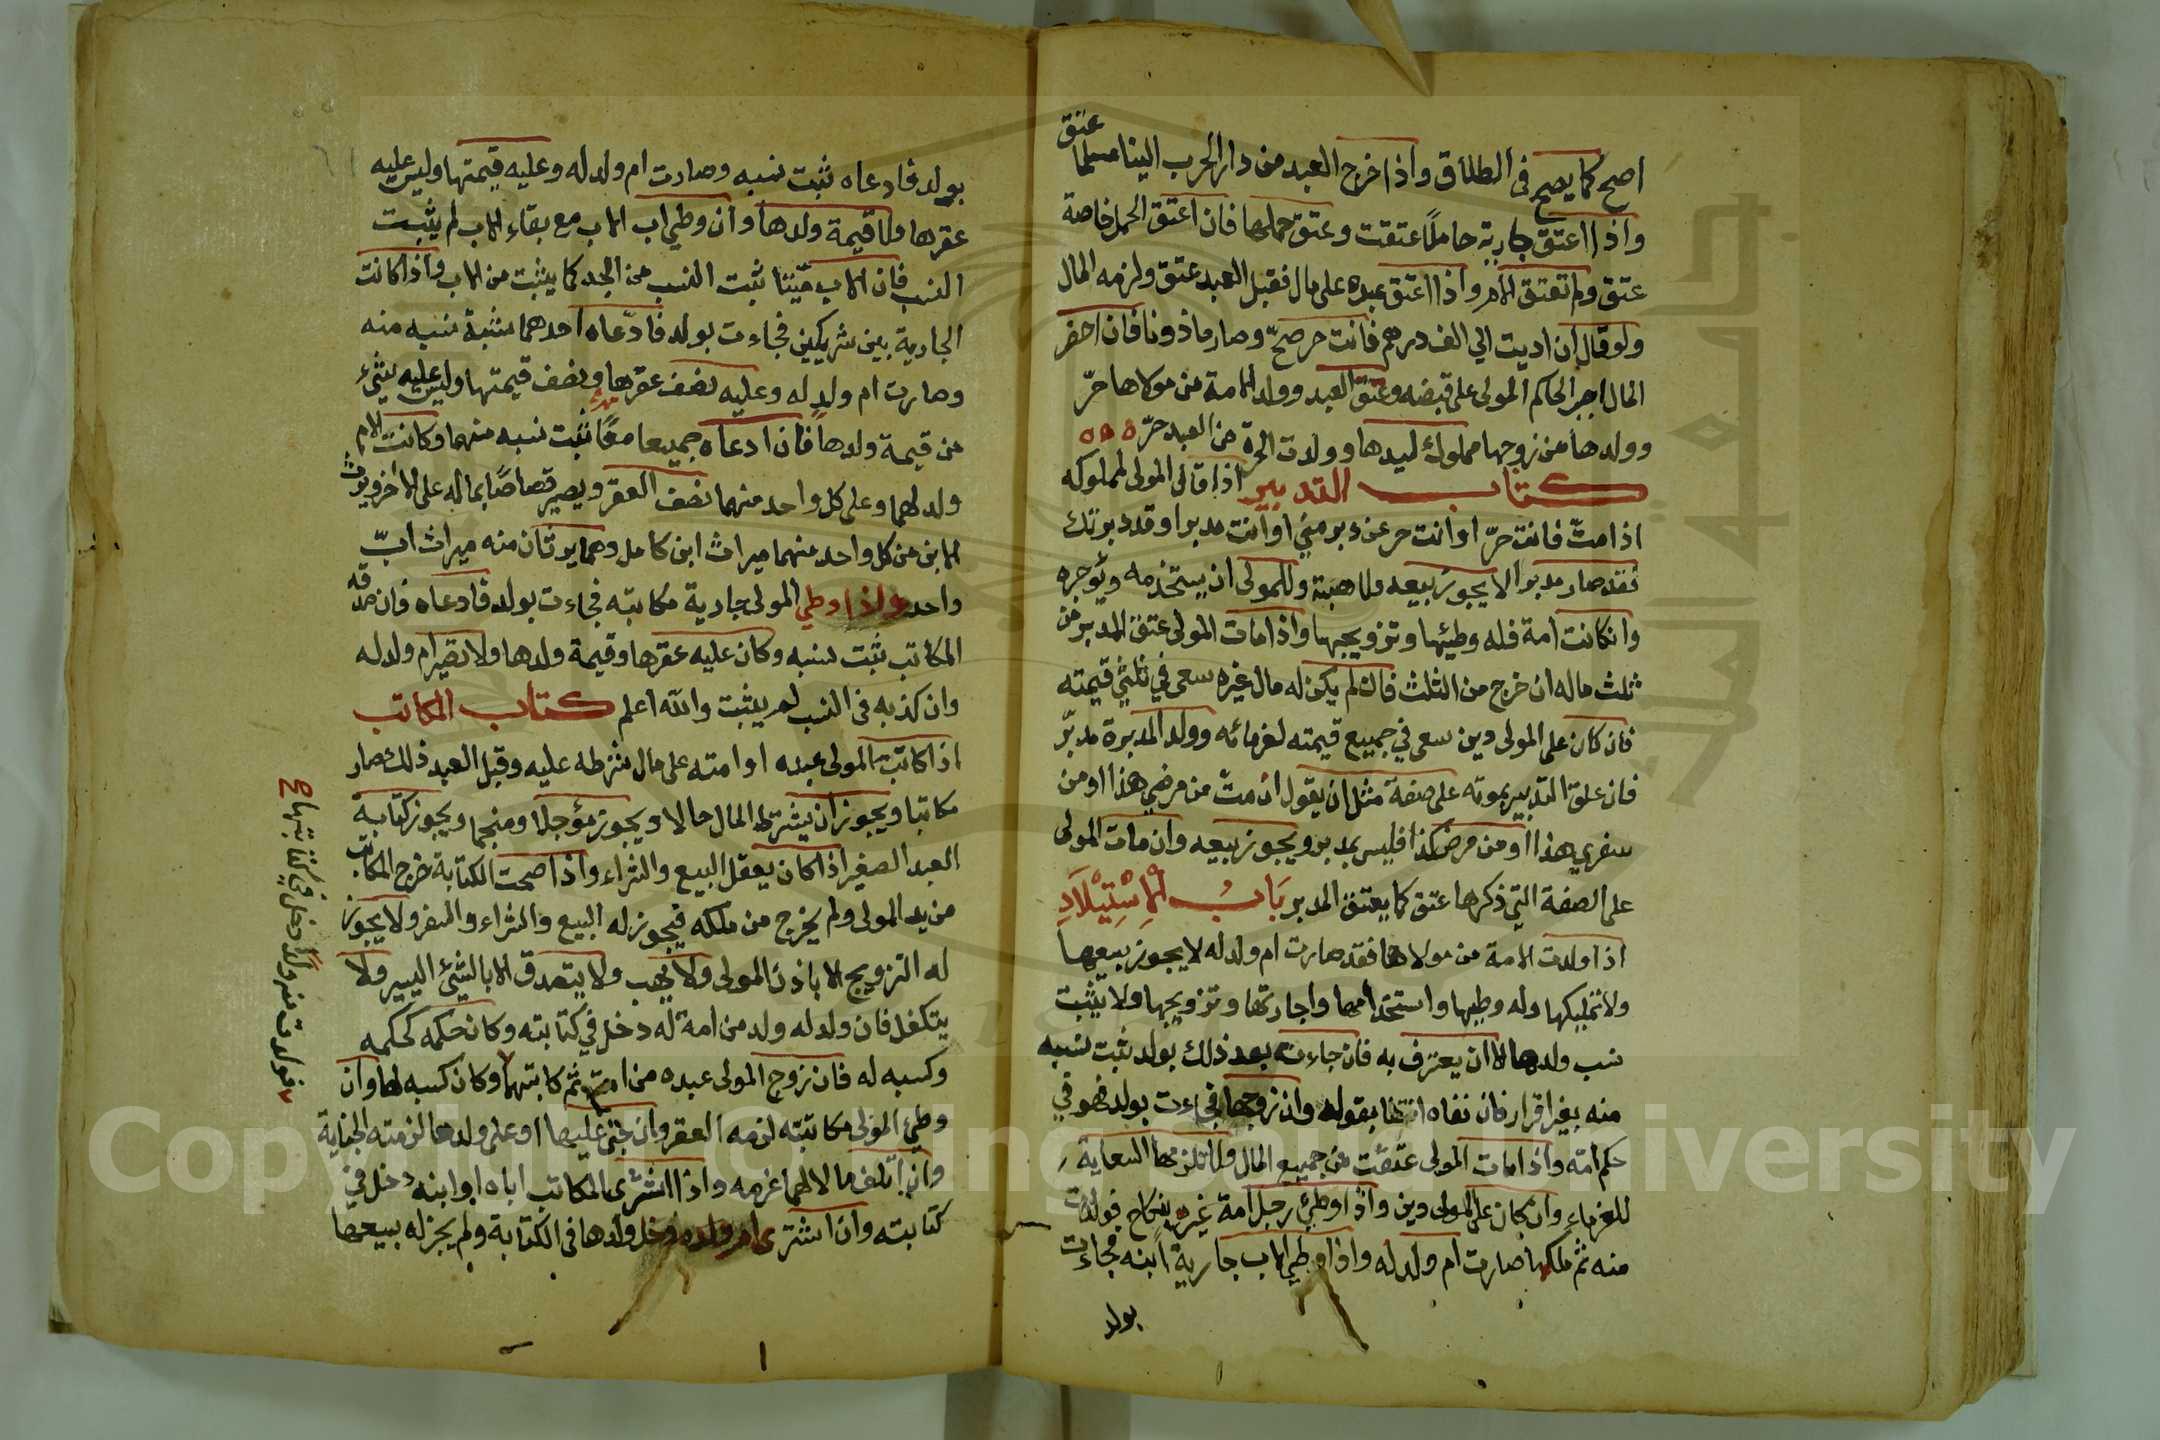 اصح كما يصح فى الطلاق واذا خرج العبد من دار الحرب الينا مسلما عتق
واذا اعتق جارية حاملاً عتقت وعتق حملها فان اعتق الحمل خاصة
عتق ولم تعتق الام واذا اعتق عبده على مال فقبل العبد عتق ولزمه المال
ولو قال ان اديت الي الف درهم فانت حر صحّ وصار ماذونا فان احضر
المال اجبر الحاكم المولى على قبضه وعتق العبد وولد الامة من مولاها حرّ
وولدها من زوجها مملوك لسيدها وولدت الحرة من العبد حرّ ٥٥٥
كتاب التدبير اذا قال المولى لمملوكه
اذا متّ فانت حرّ او انت حر عن دبر منيّ او انت مدبر او قد دبرتك
فقد صار مدبرا لا يجوز بيعه ولا هبته وللمولى ان يستخدمه ويؤجره
وان كانت امة فله وطيئها وتزويجها واذا مات المولى عتق المدبر من
ثلث ماله ان خرج من الثلث فان لم يكن له مال غيره سعى في ثلثي قيمته
فان كان على المولى دين سعى في جميع قيمته لغرمائه وولد المدبرة مدبّر
فان علق التدبير بموته على صفة مثل ان يقول ان متّ من مرضي هذا او من
سفري هذا او من مرض كذا فليس بمدبر ويجوز بيعه وان مات المولى
على الصفة التي ذكرها عتق كما يعتق المدبر بَابُ الاِسْتِيْلَادِ
اذا ولدت الامة من مولاها فقد صارت ام ولد له لا يجوز بيعها
ولا تمليكها وله وطيها واستخدامها واجارتها وتزويجها ولا يثبت
نسب ولدها الا ان يعترف به فان جاءت بعد ذلك بولد ثبت نسبه
منه بغير اقرار فان نفاه انتفا بقوله وان زوجها فجاءت بولد فهو في
حكم امه واذا مات المولى عتقت من جميع المال ولا تلزمها السعاية
للغرماء وان كان على المولى دين واذا وطئ رجل امة غيره بنكاح فولدت
منه ثم ملكها صارت ام ولد له واذا وطي الاب جارية ابنه فجاءت
بولد
بولد فادعاه ثبت نسبه وصارت ام ولد له وعليه قيمتها وليس عليه
عقرها ولا قيمة ولدها وان وطي اب الاب مع بقاء الاب لم يثبت
النسب فان الاب ميّتا ثبت النسب من الجد كما يثبت من الاب واذا كانت
الجارية بين شريكين فجاءت بولد فادّعاه احدهما ثبت نسبه منه
وصارت ام ولد له وعليه نصف عقرها ونصف قيمتها وليس عليه شئ
من قيمة ولدها فان ادعاه جميعا معًا ثبت نسبه منهما وكانت الام
ولد لهما وعلى كل واحد منهما نصف العقر ويصير قصاصًا بماله على الاخر ويرث
الابن من كل واحد منهما ميراث ابن كامل وهما يرثان منه ميراث ابّ
واحد واذا وطي المولى جارية مكاتبه فجاءت بولد فادعاه فان صدقه
المكاتب ثبت نسبه وكان عليه عقرها وقيمة ولدها ولا تصير ام ولد له
وان كذبه فى النسب لم يثبت والله اعلم كتاب المكاتب
اذا كاتب المولى عبده او امته على مال شرطه عليه وقبل العبد ذلك صار
مكاتبا ويجوز ان يشترط المال حالا ويجوز مؤجلا ومنجما ويجوز كتابة
العبد الصغير اذا كان يعقل البيع والشراء واذا صحت الكتابة خرج المكاتب
من يد المولى ولم يخرج من ملكه فيجوز له البيع والشراء والسفر ولا يجوز
له التزويج الا باذن المولى ولا يهب ولا يتصدق الا بالشئ اليسير ولا
يتكفل فان ولد له ولد من امة له دخل في كتابته وكان حكمه كحكمه
وكسبه له فان زوج المولى عبده من امته ثم كاتبهما وكان كسبه لها وان
وطئ المولى مكاتبته لزمه العقر وان جنى عليها او على ولدها لزمته الجناية
وان اتلف مالا لهما غرمه واذا اشترى المكاتب اباه او ابنه دخل في
كتابته وان اشترى ام ولده دخل ولدها فى الكتابة ولم يجز له بيعها
فولدت منه ولدًا دخل في كتابتها صح